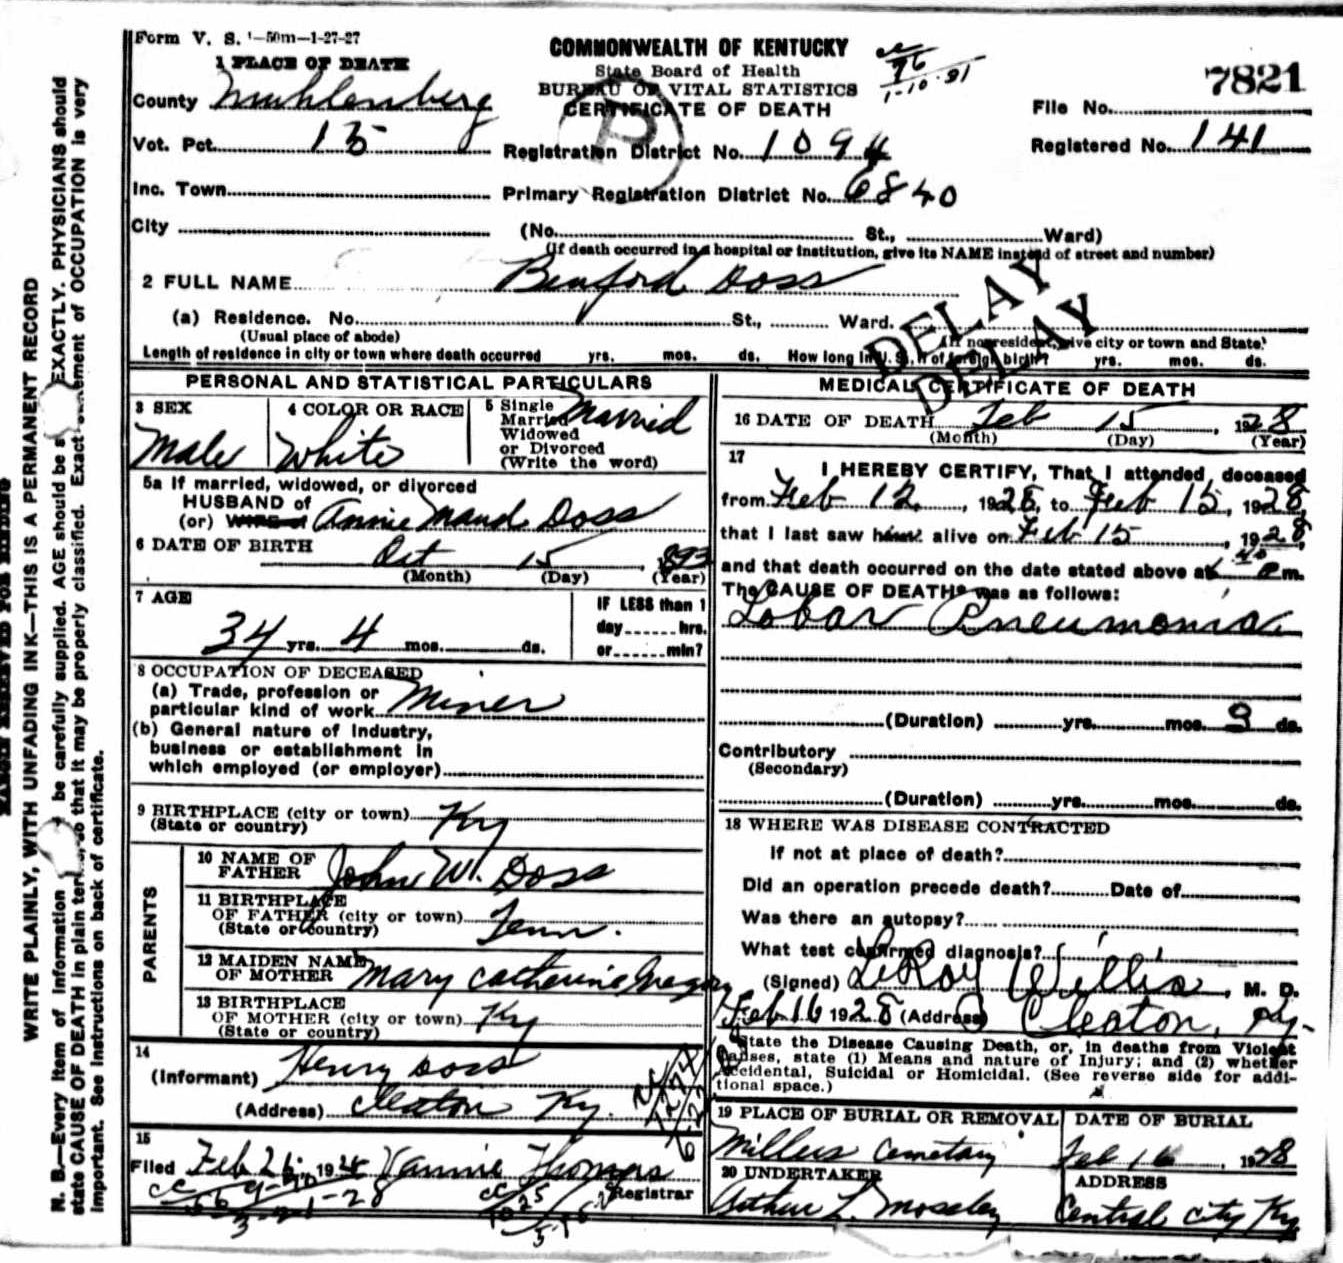 Form V. S. 1—50m—1-27-27
1 PLACE OF DEATH
County Muhlenberg
Vot. Pct. 15
Inc. Town
City
COMMONWEALTH OF KENTUCKY
State Board of Health
BUREAU OF VITAL STATISTICS
CERTIFICATE OF DEATH
1-10-91
7821
File No.
Registered No. 141
Registration District No. 1094
Primary Registration District No. 6840
(No. St., Ward)
(If death occurred in a hospital or institution, give its NAME instead of street and number)
2 FULL NAME Benford Doss
(a) Residence. No. St., Ward.
(Usual place of abode) (If nonresident, give city or town and State)
Length of residence in city or town where death occurred yrs. mos. ds. How long in U. S., if of foreign birth? yrs. mos. ds.
DELAY
DELAY
PERSONAL AND STATISTICAL PARTICULARS
3 SEX
Male
4 COLOR OR RACE
White
5 Single
Married
Widowed
or Divorced
(Write the word)
Married
5a If married, widowed, or divorced
HUSBAND of
(or) WIFE of Annie Maud Doss
6 DATE OF BIRTH Oct 15, 1893
(Month) (Day) (Year)
7 AGE
34 yrs. 4 mos. ds.
IF LESS than 1
day hrs.
or min?
8 OCCUPATION OF DECEASED
(a) Trade, profession or
particular kind of work Miner
(b) General nature of Industry,
business or establishment in
which employed (or employer)
9 BIRTHPLACE (city or town) Ky
(State or country)
PARENTS
10 NAME OF
FATHER John W. Doss
11 BIRTHPLACE
OF FATHER (city or town) Tenn.
(State or country)
12 MAIDEN NAME
OF MOTHER Mary Catherine Gregory
13 BIRTHPLACE
OF MOTHER (city or town) Ky
(State or country)
14
(Informant) Henry Doss
(Address) Cleaton Ky.
15
Filed Feb 26, 1928 Vannie Thomas
Registrar
MEDICAL CERTIFICATE OF DEATH
16 DATE OF DEATH Feb 15, 1928
(Month) (Day) (Year)
17
I HEREBY CERTIFY, That I attended deceased
from Feb 12, 1928, to Feb 15, 1928,
that I last saw him alive on Feb 15, 1928,
and that death occurred on the date stated above at m.
The CAUSE OF DEATH* was as follows:
Lobar Pneumonia
(Duration) yrs. mos. 9 ds.
Contributory
(Secondary)
(Duration) yrs. mos. ds.
18 WHERE WAS DISEASE CONTRACTED
If not at place of death?
Did an operation precede death? Date of
Was there an autopsy?
What test confirmed diagnosis?
(Signed) LeRoy Willis, M. D.
Feb 16 1928 (Address) Cleaton, Ky.
State the Disease Causing Death, or, in deaths from Violent
Causes, state (1) Means and nature of Injury; and (2) whether
Accidental, Suicidal or Homicidal. (See reverse side for addi-
tional space.)
19 PLACE OF BURIAL OR REMOVAL
Millers Cemetary
DATE OF BURIAL
Feb 16, 1928
20 UNDERTAKER
Arthur L. Moseley
ADDRESS
Central City Ky
MARGIN RESERVED FOR BINDING
WRITE PLAINLY, WITH UNFADING INK—THIS IS A PERMANENT RECORD
N. B.—Every item of information be carefully supplied. AGE should be EXACTLY. PHYSICIANS should
state CAUSE OF DEATH in plain so that it may be properly classified. Exact of OCCUPATION is very
important. See instructions on back of certificate.